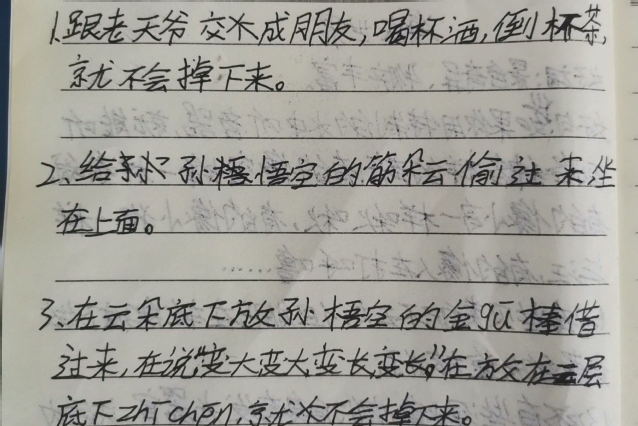 1.跟老天爷交米成朋友,喝杯酒,倒杯茶,
京尤不会掉下来。
2、给孙孙悟悟空的筋朵云偷过来坐
在上面。
3、在云朵底下放孙悟空的金gū棒借
过来,在说“变大变大,变长,变长。”在放在云层
底下zhī chen,京尤不会掉下来。